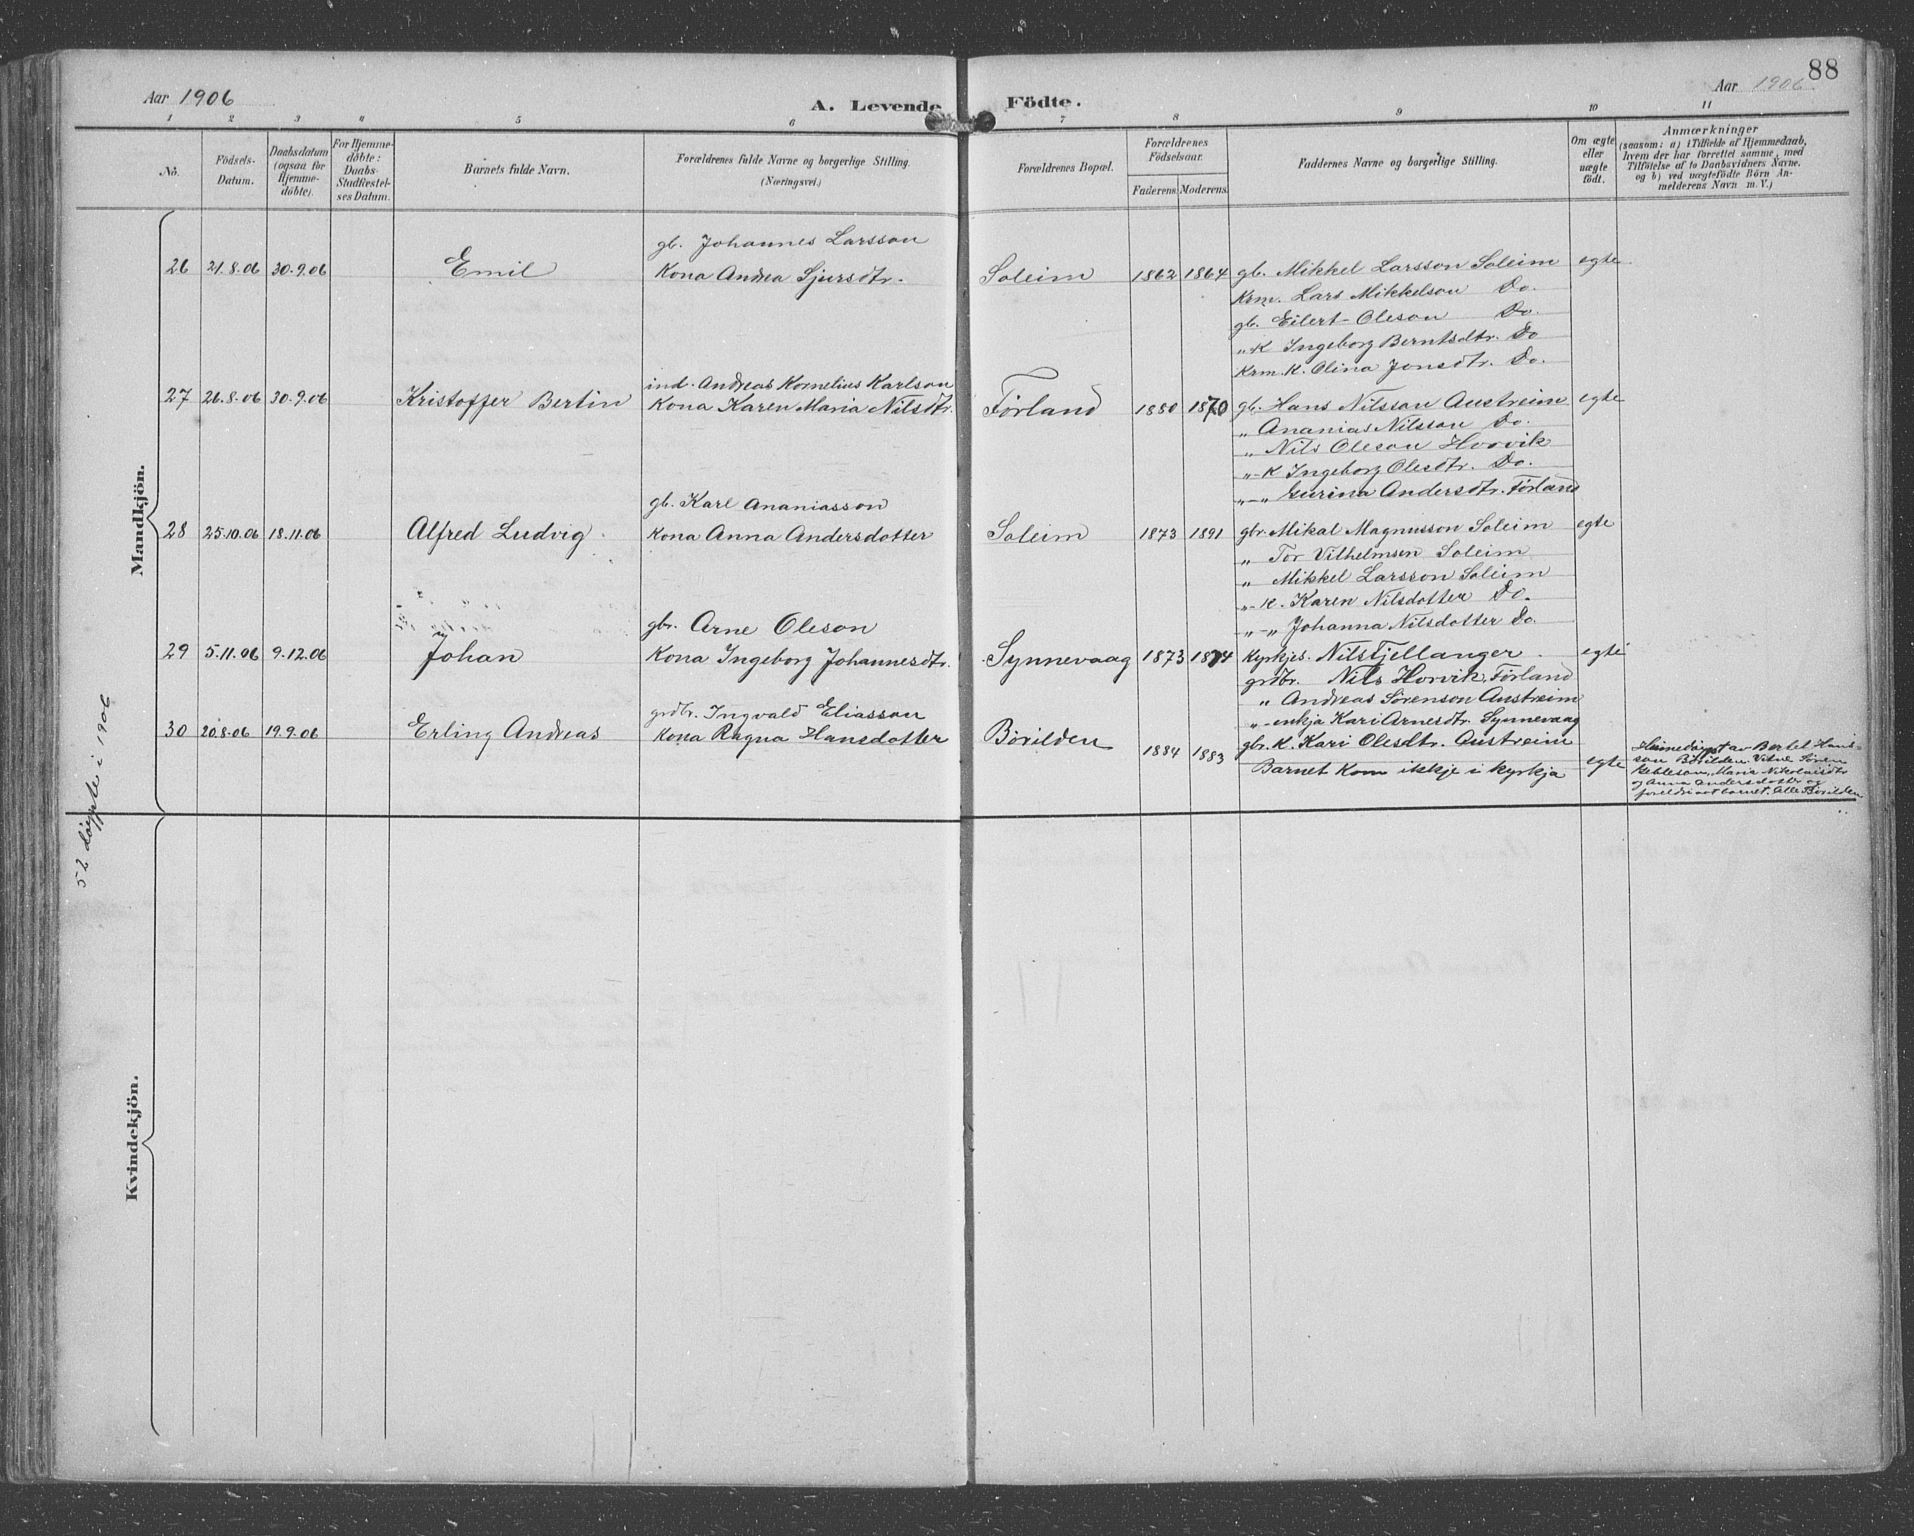 88
Aar 1906
A. Levende Födte.
Aar 1906
1 2 3 4 5 6 7 8 9 10 11
No.
Födsels-
Datum.
Daabsdatum
(ogsaa for
Hjemme-
döbte).
For Hjemme-
döbte:
Daabs-
Stadfæstel-
ses Datum.
Barnets fulde Navn.
Forældrenes fulde Navne og borgerlige Stilling.
(Næringsvei.)
Forældrenes Bopæl.
Forældrenes
Födselsaar.
Faderens. Moderens.
Faddernes Navne og borgerlige Stilling.
Om ægte
eller
uægte
födt.
Anmærkninger
(saasom: a) i Tilfælde af Hjemmedaab,
hvem der har forrettet samme, med
Tilföielse af to Daabsvidners Navne.
og b) ved uægtefödte Börn An-
melderens Navn m. V.)
Mandkjön.
gb. Johannes Larsson
26 21.8.06 30.9.06 Emil Kona Andrea Sjursdtr. Soleim 1862 1864 gb. Mikkel Larsson Soleim egte
Krm. Lars Mikkelson Do.
gb. Eilert Oleson Do.
„ K Ingeborg Berntsdtr. Do
Krm. K. Olina Jonsdtr. Do.
ind. Andreas Kornelius Karlson
27 26.8.06 30.9.06 Kristoffer Bertin Kona Karen Maria Nilsdtr. Förland 1880 1870 gb. Hans Nilsson Austreim egte
„ Ananias Nilsson Do.
„ Nils Oleson Horvik
„ K Ingeborg Olesdtr. Do.
„ „ Gurina Andersdtr. Förland
gb. Karl Ananiasson
28 25.10.06 18.11.06 Alfred Ludvig Kona Anna Andersdotter Soleim 1873 1891 gbr. Mikal Magnusson Soleim egte
„ Tor Vilhelmsen Soleim
„ Mikkel Larsson Soleim
„ K. Karen Nilsdotter Do.
„ „ Johanna Nilsdotter Do.
gbr. Arne Oleson
29 5.11.06 9.12.06 Johan Kona Ingeborg Johannesdtr. Synnevaag 1873 1874 Kyrkjes. Nils Fjellanger egte
grdbr. Nils Horvik, Förland
„ Andreas Sörenson Austreim
„ enkja Kari Arnesdtr. Synnevaag
gbr. K. Kari Olesdtr. Austreim
grdbr. Ingvald Eliasson
30 20.8.06 19.9.06 Erling Andreas Kona Ragna Hansdotter Börilden 1884 1883 Barnet kom ikkje i kyrkja egte
Heimedöypt av Bertel Hans-
son Börilden. Vitne Sören
Maria Nikolaisdtr
og Anna Andersdotter og
foreldri aat barnet. Alle Börilden
52 döypte i 1906
Kvindekjön.